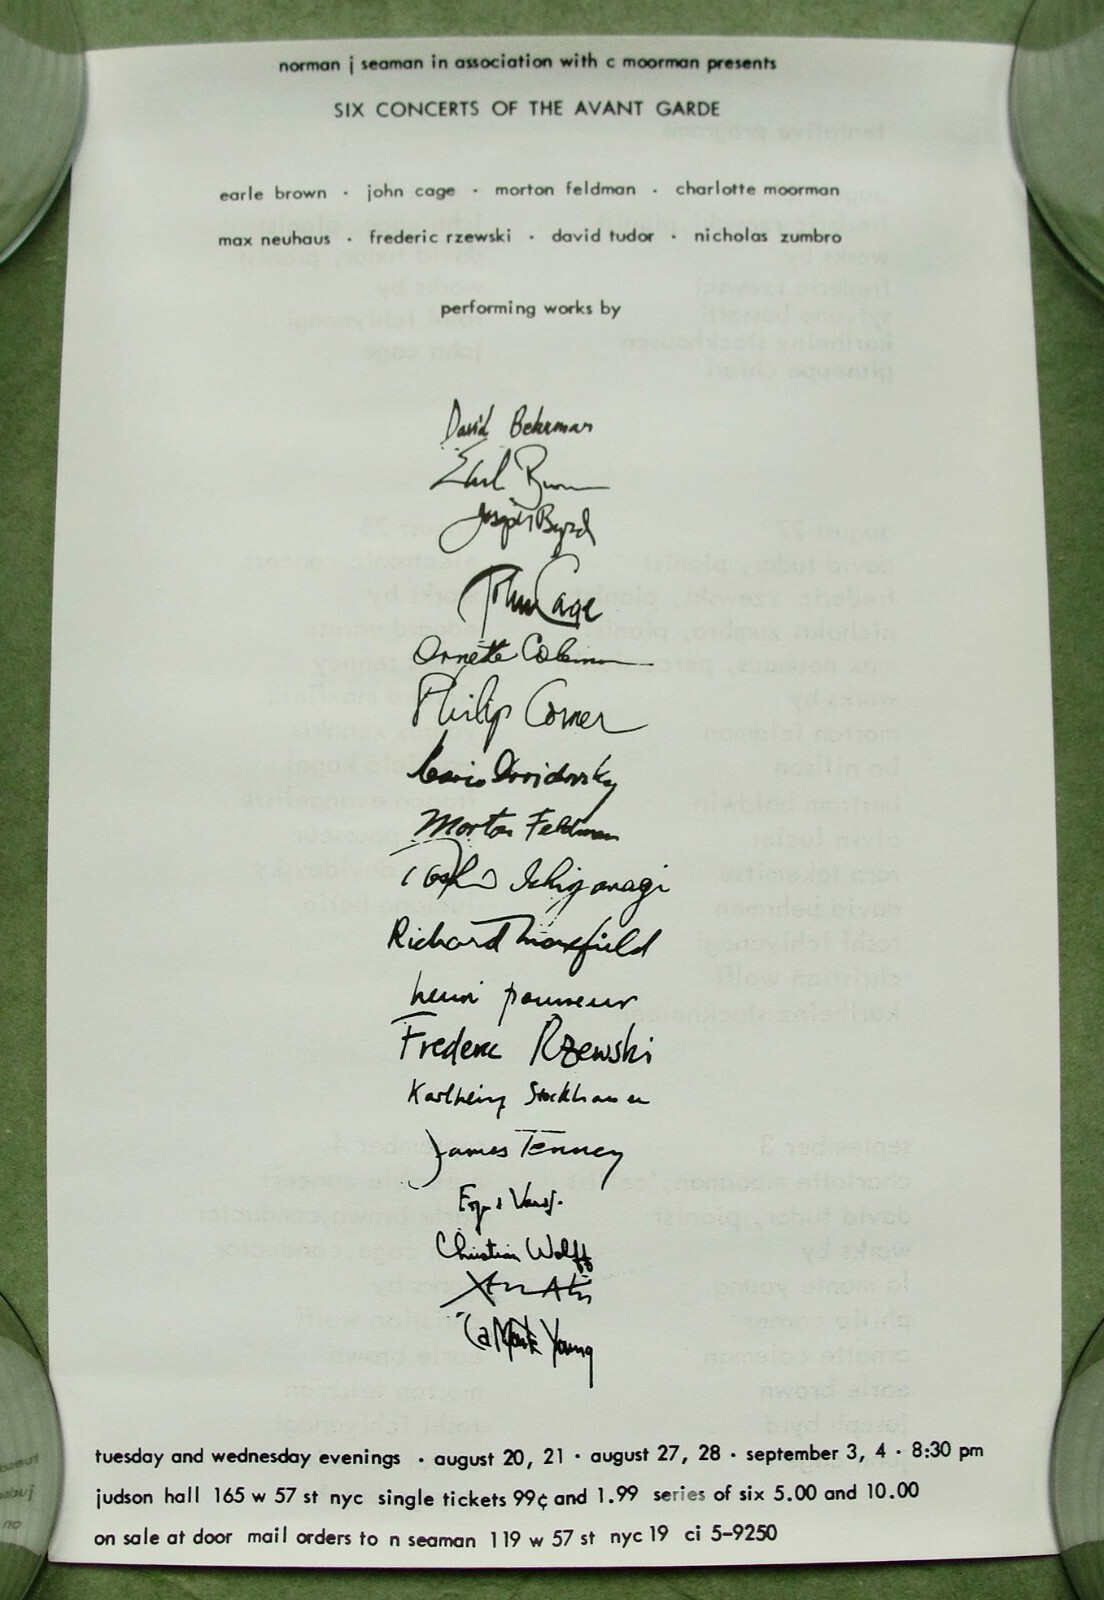 norman j seaman in association with c moorman presents
SIX CONCERTS OF THE AVANT GARDE
earle brown · john cage · morton feldman · charlotte moorman
max neuhaus · frederic rzewski · david tudor · nicholas zumbro
performing works by
David Behrman
Earle Brown
Joseph Byrd
John Cage
Ornette Coleman
Philip Corner
Mario Davidovsky
Morton Feldman
Toshi Ichiyanagi
Richard Maxfield
henri pousseur
Frederic Rzewski
Karlheinz Stockhausen
James Tenney
Christian Wolff
La Monte Young
tuesday and wednesday evenings · august 20, 21 · august 27, 28 · september 3, 4 · 8:30 pm
judson hall 165 w 57 st nyc single tickets 99¢ and 1.99 series of six 5.00 and 10.00
on sale at door mail orders to n seaman 119 w 57 st nyc 19 ci 5-9250